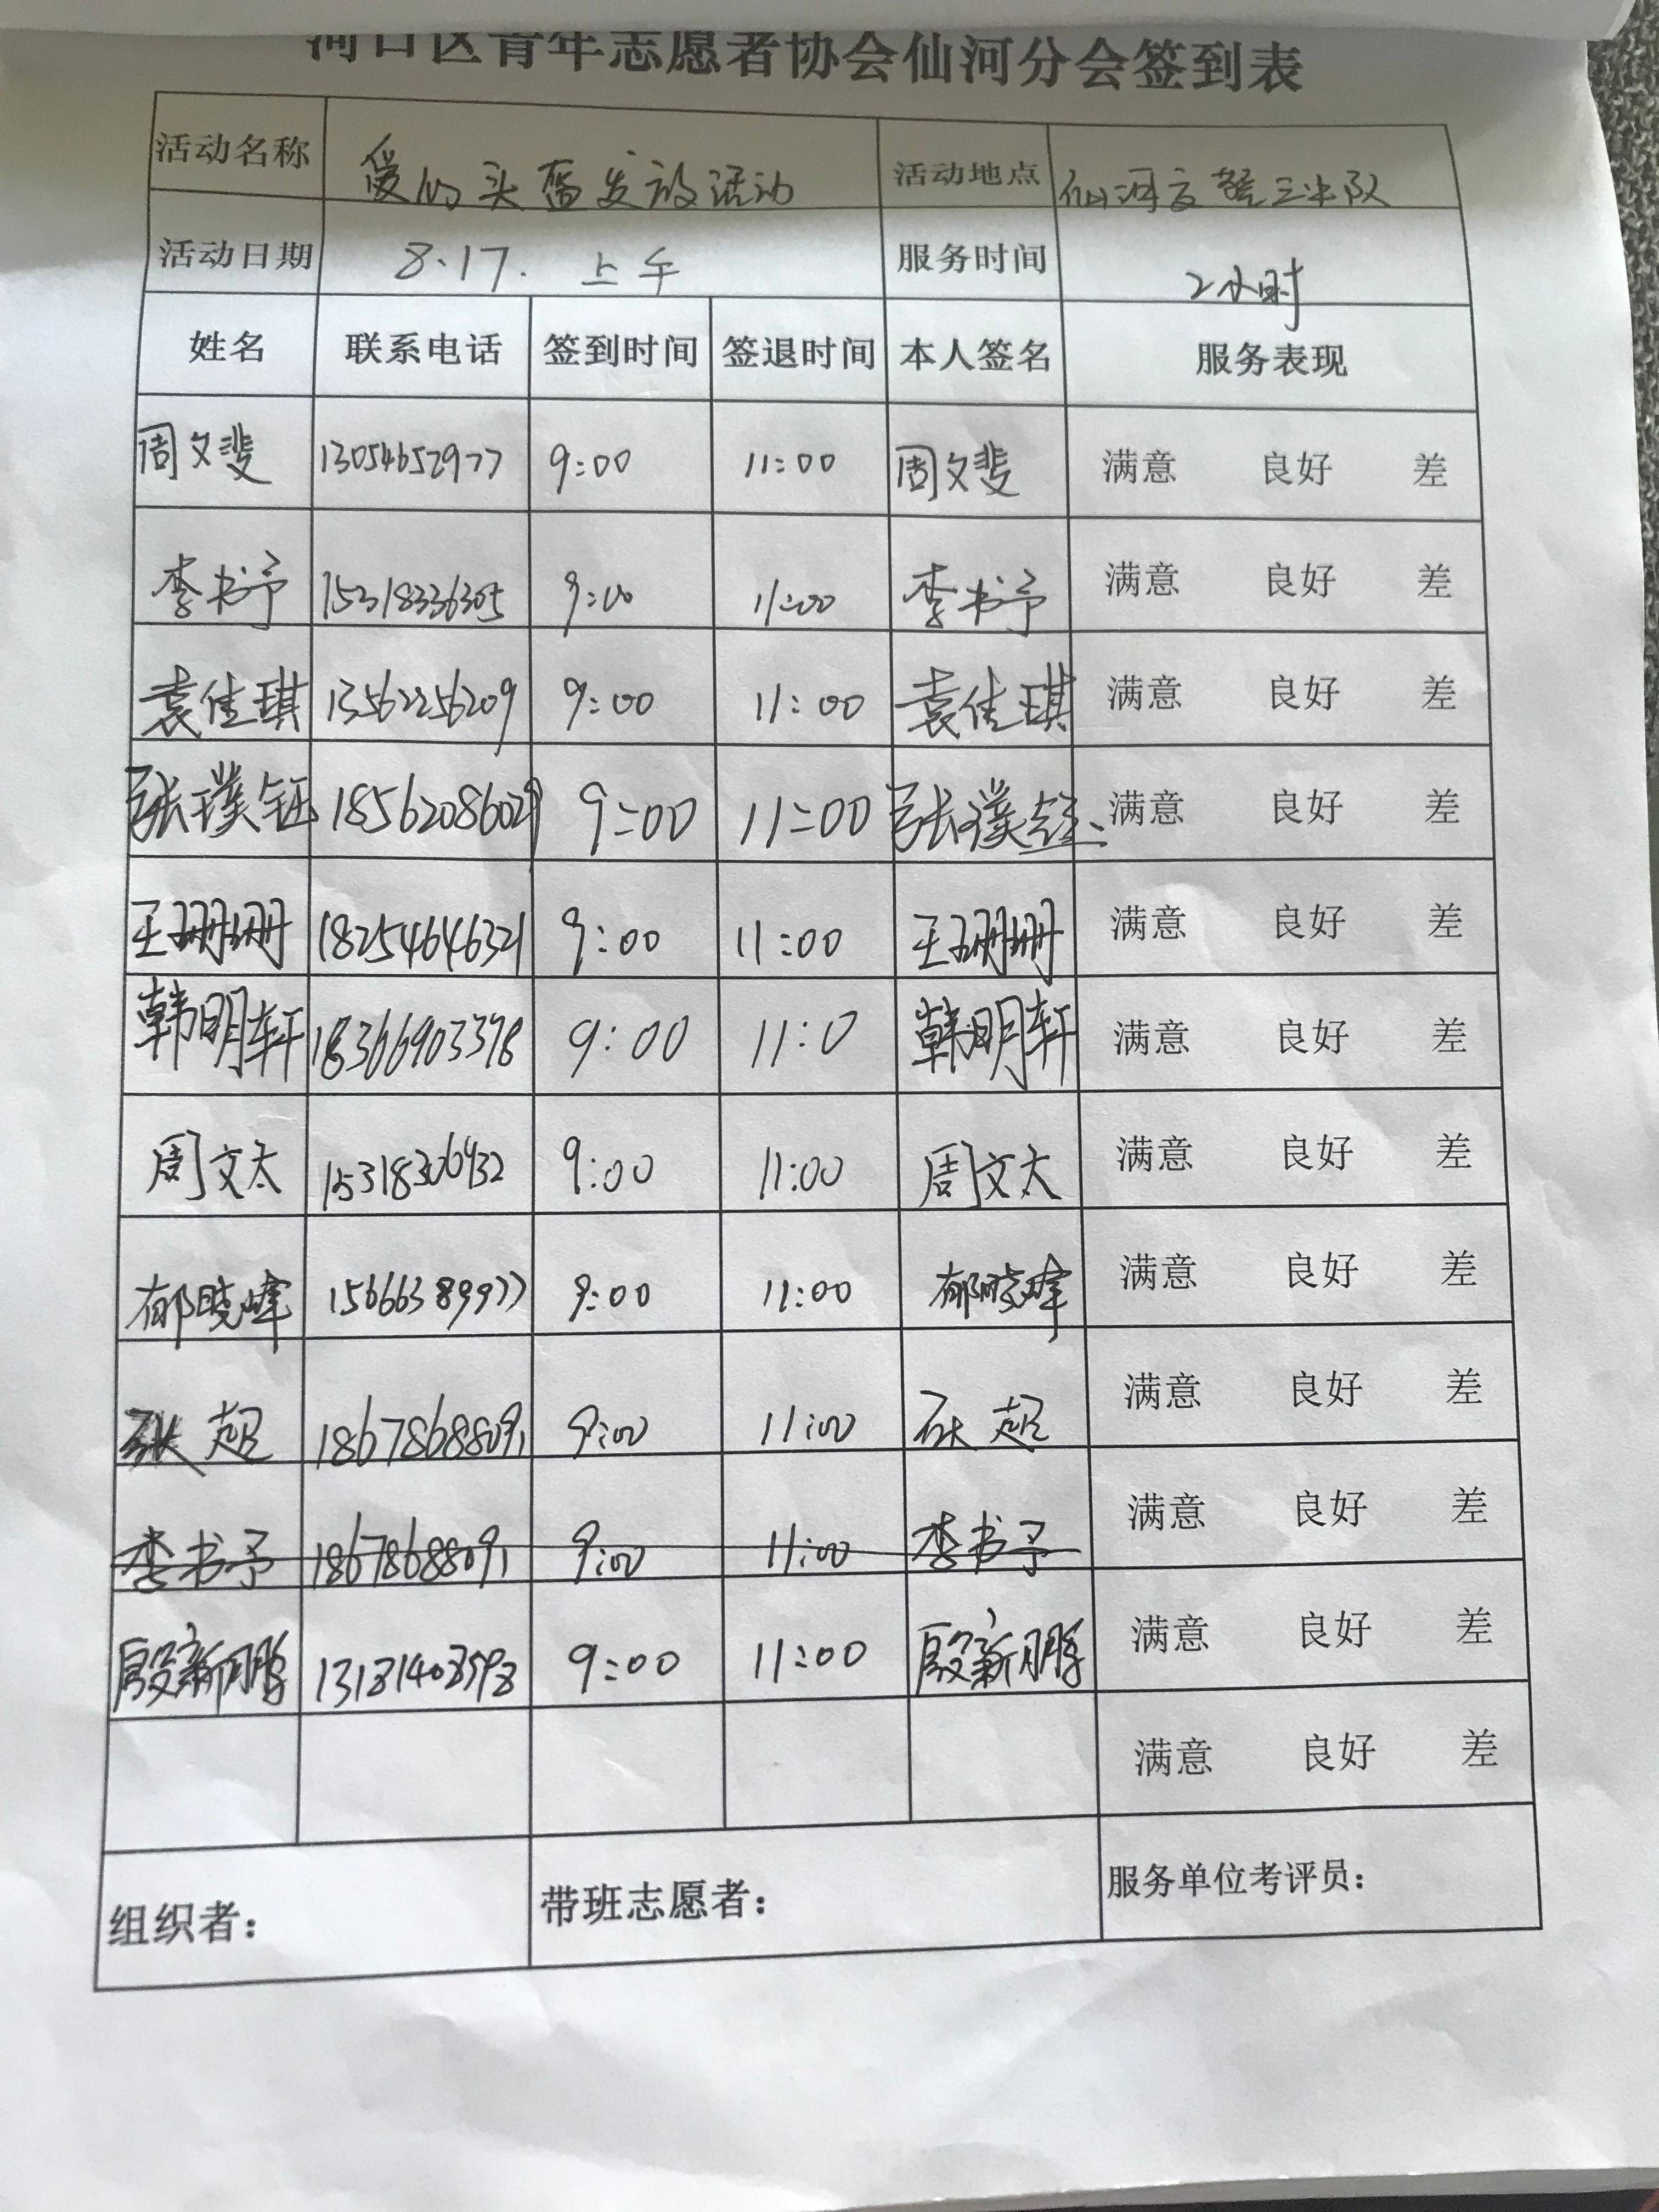 河口区青年志愿者协会仙河分会签到表
活动名称 爱的头盔发放活动 活动地点 仙河交警三中队
活动日期 8.17. 上午 服务时间 2小时
姓名 联系电话 签到时间 签退时间 本人签名 服务表现
周文斐 13054652977 9:00 11:00 周文斐 满意 良好 差
李书予 15318336305 9:00 11:00 李书予 满意 良好 差
袁佳琪 13562256209 9:00 11:00 袁佳琪 满意 良好 差
张璞钰 18562086029 9:00 11:00 张璞钰 满意 良好 差
王珊珊 18254646321 9:00 11:00 王珊珊 满意 良好 差
韩明轩 18366903378 9:00 11:0 韩明轩 满意 良好 差
周文太 15318306932 9:00 11:00 周文太 满意 良好 差
郁晓峰 15666389977 9:00 11:00 郁晓峰 满意 良好 差
张超 18678688091 9:00 11:00 张超 满意 良好 差
李书予 18678688091 9:00 11:00 李书予 满意 良好 差
殷新鹏 9:00 11:00 殷新鹏 满意 良好 差
满意 良好 差
组织者： 带班志愿者： 服务单位考评员：